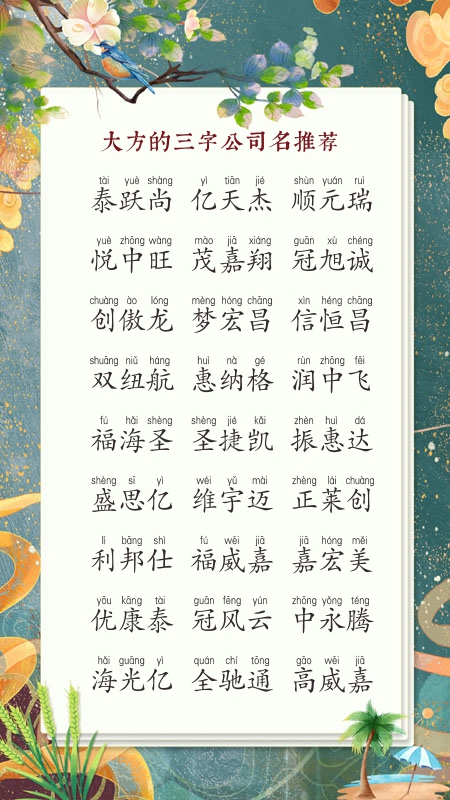 大方的三字公司名推荐
tài yuè shàng yì tiān jié shùn yuán ruì
泰跃尚 亿天杰 顺元瑞
yuè zhōng wàng mào jiā xiáng guān xù chéng
悦中旺 茂嘉翔 冠旭诚
chuàng ào lóng mèng hóng chāng xìn héng chāng
创傲龙 梦宏昌 信恒昌
shuāng niǔ háng huì nà gé rùn zhōng fēi
双纽航 惠纳格 润中飞
fú hǎi shèng shèng jié kǎi zhèn huì dá
福海圣 圣捷凯 振惠达
shèng sī yì wéi yǔ mài zhèng lái chuàng
盛思亿 维宇迈 正莱创
lì bāng shì fú wēi jiā jiā hóng měi
利邦仕 福威嘉 嘉宏美
yōu kāng tài guān fēng yún zhōng yǒng téng
优康泰 冠风云 中永腾
hǎi guāng yì quán chí tōng gāo wēi jiā
海光亿 全驰通 高威嘉